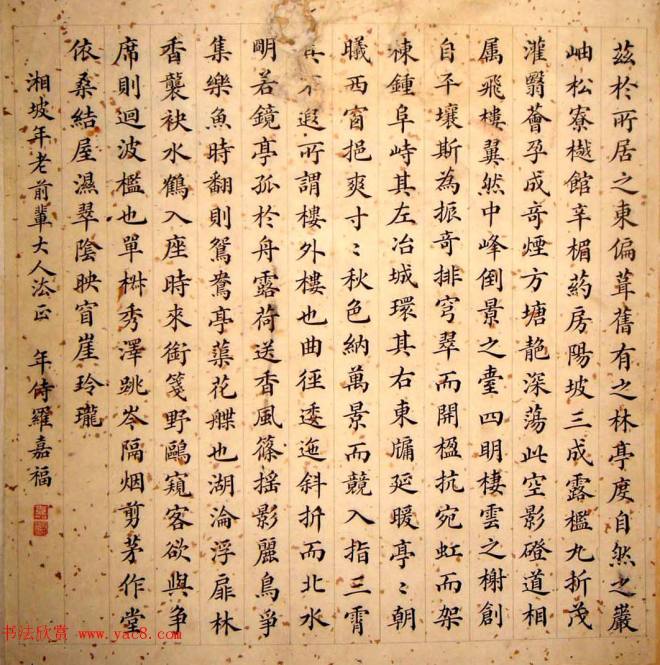 茲於所居之東偏葺舊有之林亭度自然之巖
岫松寮樾館辛楣葯房陽坡三成露檻九折茂
灌翳薈孕成奇煙方塘靘深蕩此空影磴道相
属飛樓翼然中峰倒景之臺四明棲雲之榭創
自平壤斯為振奇排穹翠而開楹抗宛虹而架
棟鍾阜峙其左冶城環其右東牖延暖亭〻朝
曦西窗挹爽寸〻秋色納萬景而競入指三霄
其不遐所謂樓外樓也曲徑逶迤斜折而北水
明若鏡亭孤於舟露荷送香風篠搖影麗鳥爭
集樂魚時翻則鴛鴦亭蕖花艓也湖淪浮扉林
香襲袂水鶴入座時來銜箋野鷗窺客欲與爭
席則迴波檻也單椒秀澤跳岑隔烟剪茅作堂
依桑結屋濕翠陰映窅崖玲瓏
湘坡年老前輩大人法正 年侍羅嘉福
书法欣赏 www.yac8.com